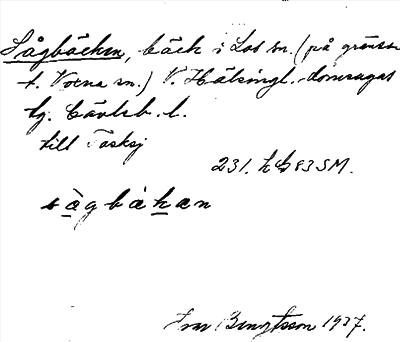 Sågbäcken, bäck i Los sn. (på gränsen
t. Voxna sn.) V. Hälsingl. domsagas
tg. Gävleb. l.
till Tosksj
231. h 83 SM.
sågbäkan
Ivar Bengtsson 1937.